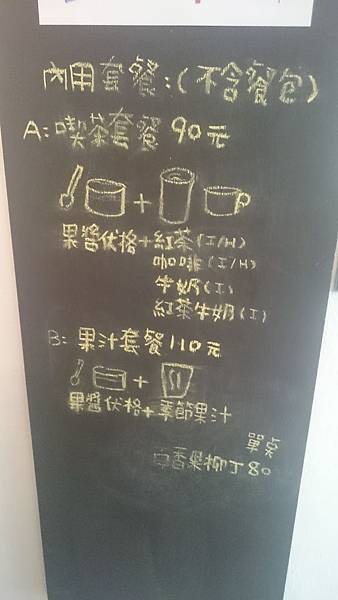 內用套餐:(不含餐包)
A:喫茶套餐 90元
+
果醬优格+紅茶(I/H)
咖啡(I/H)
牛奶(I)
紅茶牛奶(I)
B: 果汁套餐 110元
+
果醬优格+季節果汁
單點
百香果柳丁80